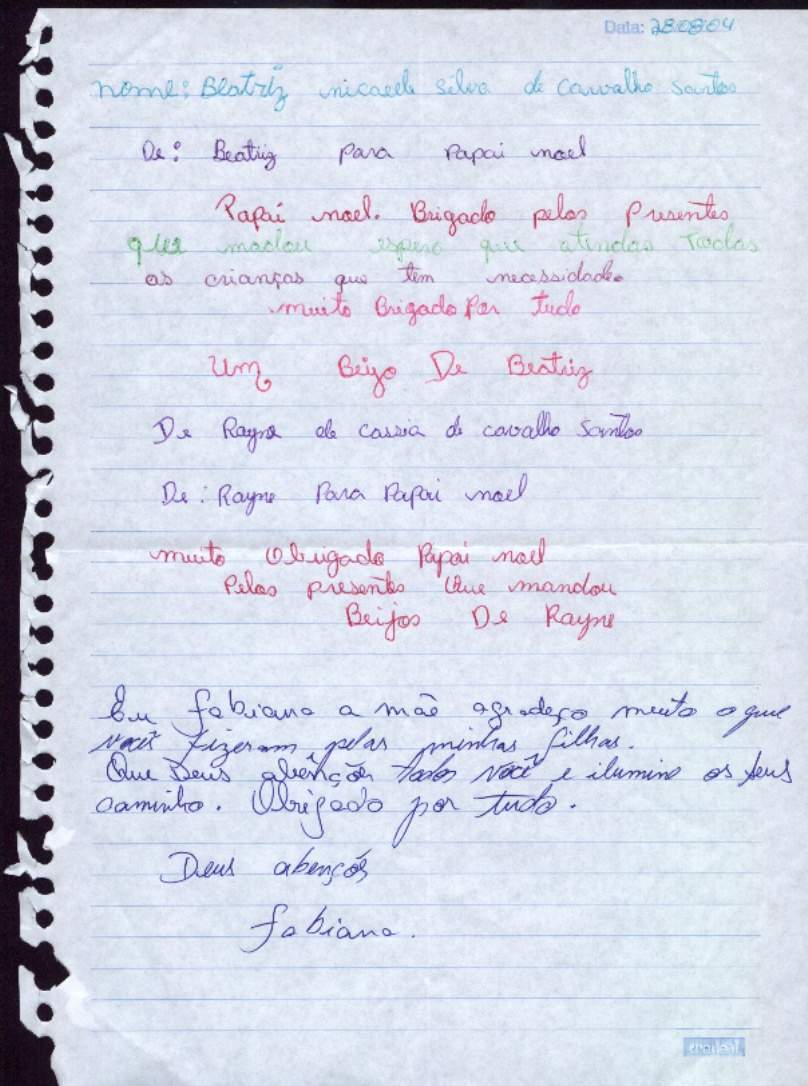 Data: 28.08.04
nome: Beatriz micaele silva de carvalho santos
De: Beatriz para Papai noel
Papai noel. Brigado pelos presentes
que madou espero que atendas Todas
as crianças que tem necessidade.
muito Brigado Por tudo
Um Beizo De Beatriz
De Rayne de cassia de carvalho Santos
De: Rayne Para Papai noel
muito Obrigado Papai noel
Pelos presentes Que mandou
Beijos De Rayne
Eu fabiana a mãe agradeço muito o que
você fizeram pelas minhas filhas.
Que Deus abênções todos você e ilumine os seus
caminho. Obrigado por tudo.
Deus abenções
fabiana.